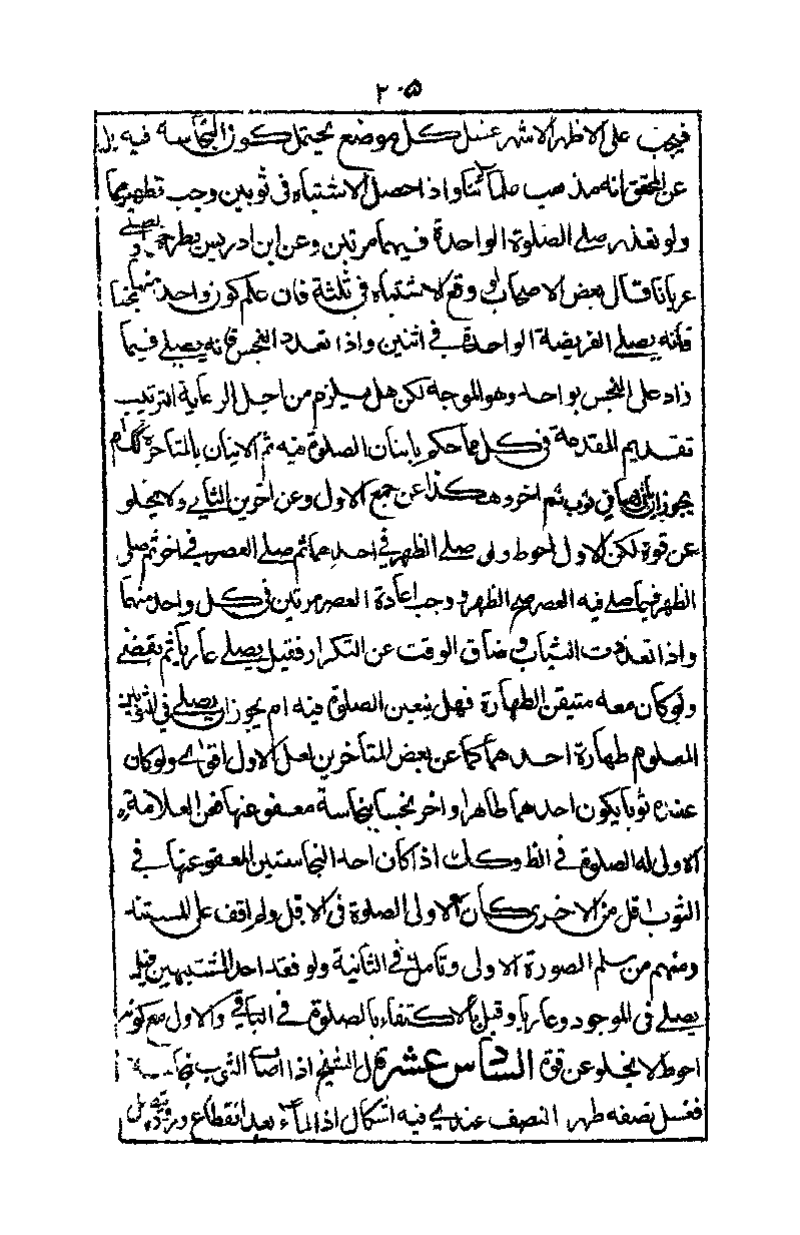 ٢٠٥
فيجب على الاظهر الاشهر غسل كل موضع يحتمل كون النجاسة فيه بل
عن المحقق انه مذهب علمائنا واذا حصل الاشتباه فى ثوبين وجب تطهيرهما
ولو تعذر صلى الصلوة الواحدة فيهما مرتين وعن ابن ادريس يطرحهما ويصلے
عريانا قال بعض الاصحاب لو وقع الاشتباه فى ثلثة فان علم كون واحد منها نجسا
فانه يصلے الفريضة الواحدة فے اثنين واذا تعدد النجس فانه يصلے فيما
زاد على النجس بواحد وهو الموجه لكن هل يلزم من اجل الرعاية الترتيب
تقديم المقدمة فى كل ما حكم باتيان الصلوة فيه ثم الاتيان بالمتأخرة كك ام
يجوز فى ثوب ثم اخر وهكذا عن جمع الاول وعن اخرين الثانے ولا يخلو
عن قوة لكن الاول احوط ولو صلے الظهر فے احدهما ثم صلے العصر فے اخر ثم صلى
الظهر فيما صلے فيه العصر صح الظهر ووجب اعادة العصر مرتين فى كل واحد منهما
واذا تعددت الثياب و ضاق الوقت عن التكرار فقيل يصلے عاريا ثم يقضے
ولو كان معه متيقن الطهارة فهل يتعين الصلوة فيه ام يجوز ان يصلے فى الثوبين
المعلوم طهارة احدهما كما عن بعض المتأخرين لعل الاول اقوے ولو كان
عنده ثوبا يكون احدهما طاهرا واخر نجسا بنجاسة معفو عنها فعن العلامة ره
الاولى له الصلوة فے الطاهر وكك اذا كان احد النجاستين المعفو عنها فے
الثوب اقل من الاخرى كان الاولى الصلوة فى الاقل ولم اقف على المستند
ومنهم من سلم الصورة الاولى وتأمل فے الثانية ولو فقد احد المشتبهين قيل
يصلے فى الموجود وعاريا وقيل بالاكتفاء بالصلوة فے الباقے والاول مع كونه
احوط لا يخلو عن قوة السادس عشر قال الشيخ اذا اصاب الثوب نجاسة
فغسل نصفه طهر النصف عندى فيه اشكال اذ الماء بعد انقطاع